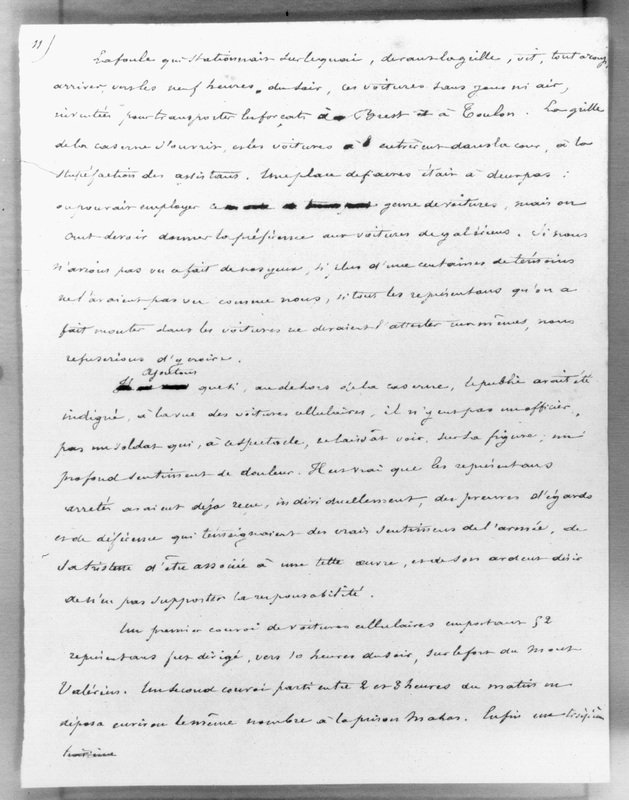 11)
La foule qui stationnait sur le quai, devant la grille, vit, tout à coup,
arriver, vers les neuf heures du soir, ces voitures sans jour ni air,
inventées pour transporter les forçats à Brest et à Toulon. La grille
de la caserne s'ouvrit, et les voitures entrèrent dans la cour, à la
stupéfaction des assistans. Une place de fiacres était à deux pas :
on pouvait employer ce genre de voitures, mais on
crut devoir donner la préférence aux voitures de galériens. Si nous
n'avions pas vu ce fait de nos yeux, si plus d'une centaines de témoins
ne l'avaient pas vu comme nous, si tous les représentans qu'on a
fait monter dans les voitures ne devaient l'attester eux-mêmes, nous
refuserions d'y croire.
Ajoutons
que si, au dehors de la caserne, le public avait été
indigné, à la vue des voitures cellulaires, il n'y eut pas un officier,
pas un soldat qui, à ce spectacle, ne laissât voir, sur sa figure, un
profond sentiment de douleur. Il est vrai que les représentans
arrêtés avaient déjà reçu, individuellement, des preuves d'égards
et de déférence qui témoignaient des vrais sentimens de l'armée, de
sa tristesse d'être associée à une telle œuvre, et de son ardent désir
de n'en pas supporter la responsabilité.
Un premier convoi de voitures cellulaires emportant 52
représentans fut dirigé, vers 10 heures du soir, sur le fort du Mont
Valérien. Un second convoi parti entre 2 et 3 heures du matin en
déposa environ le même nombre à la prison Mazas. Enfin un troisième